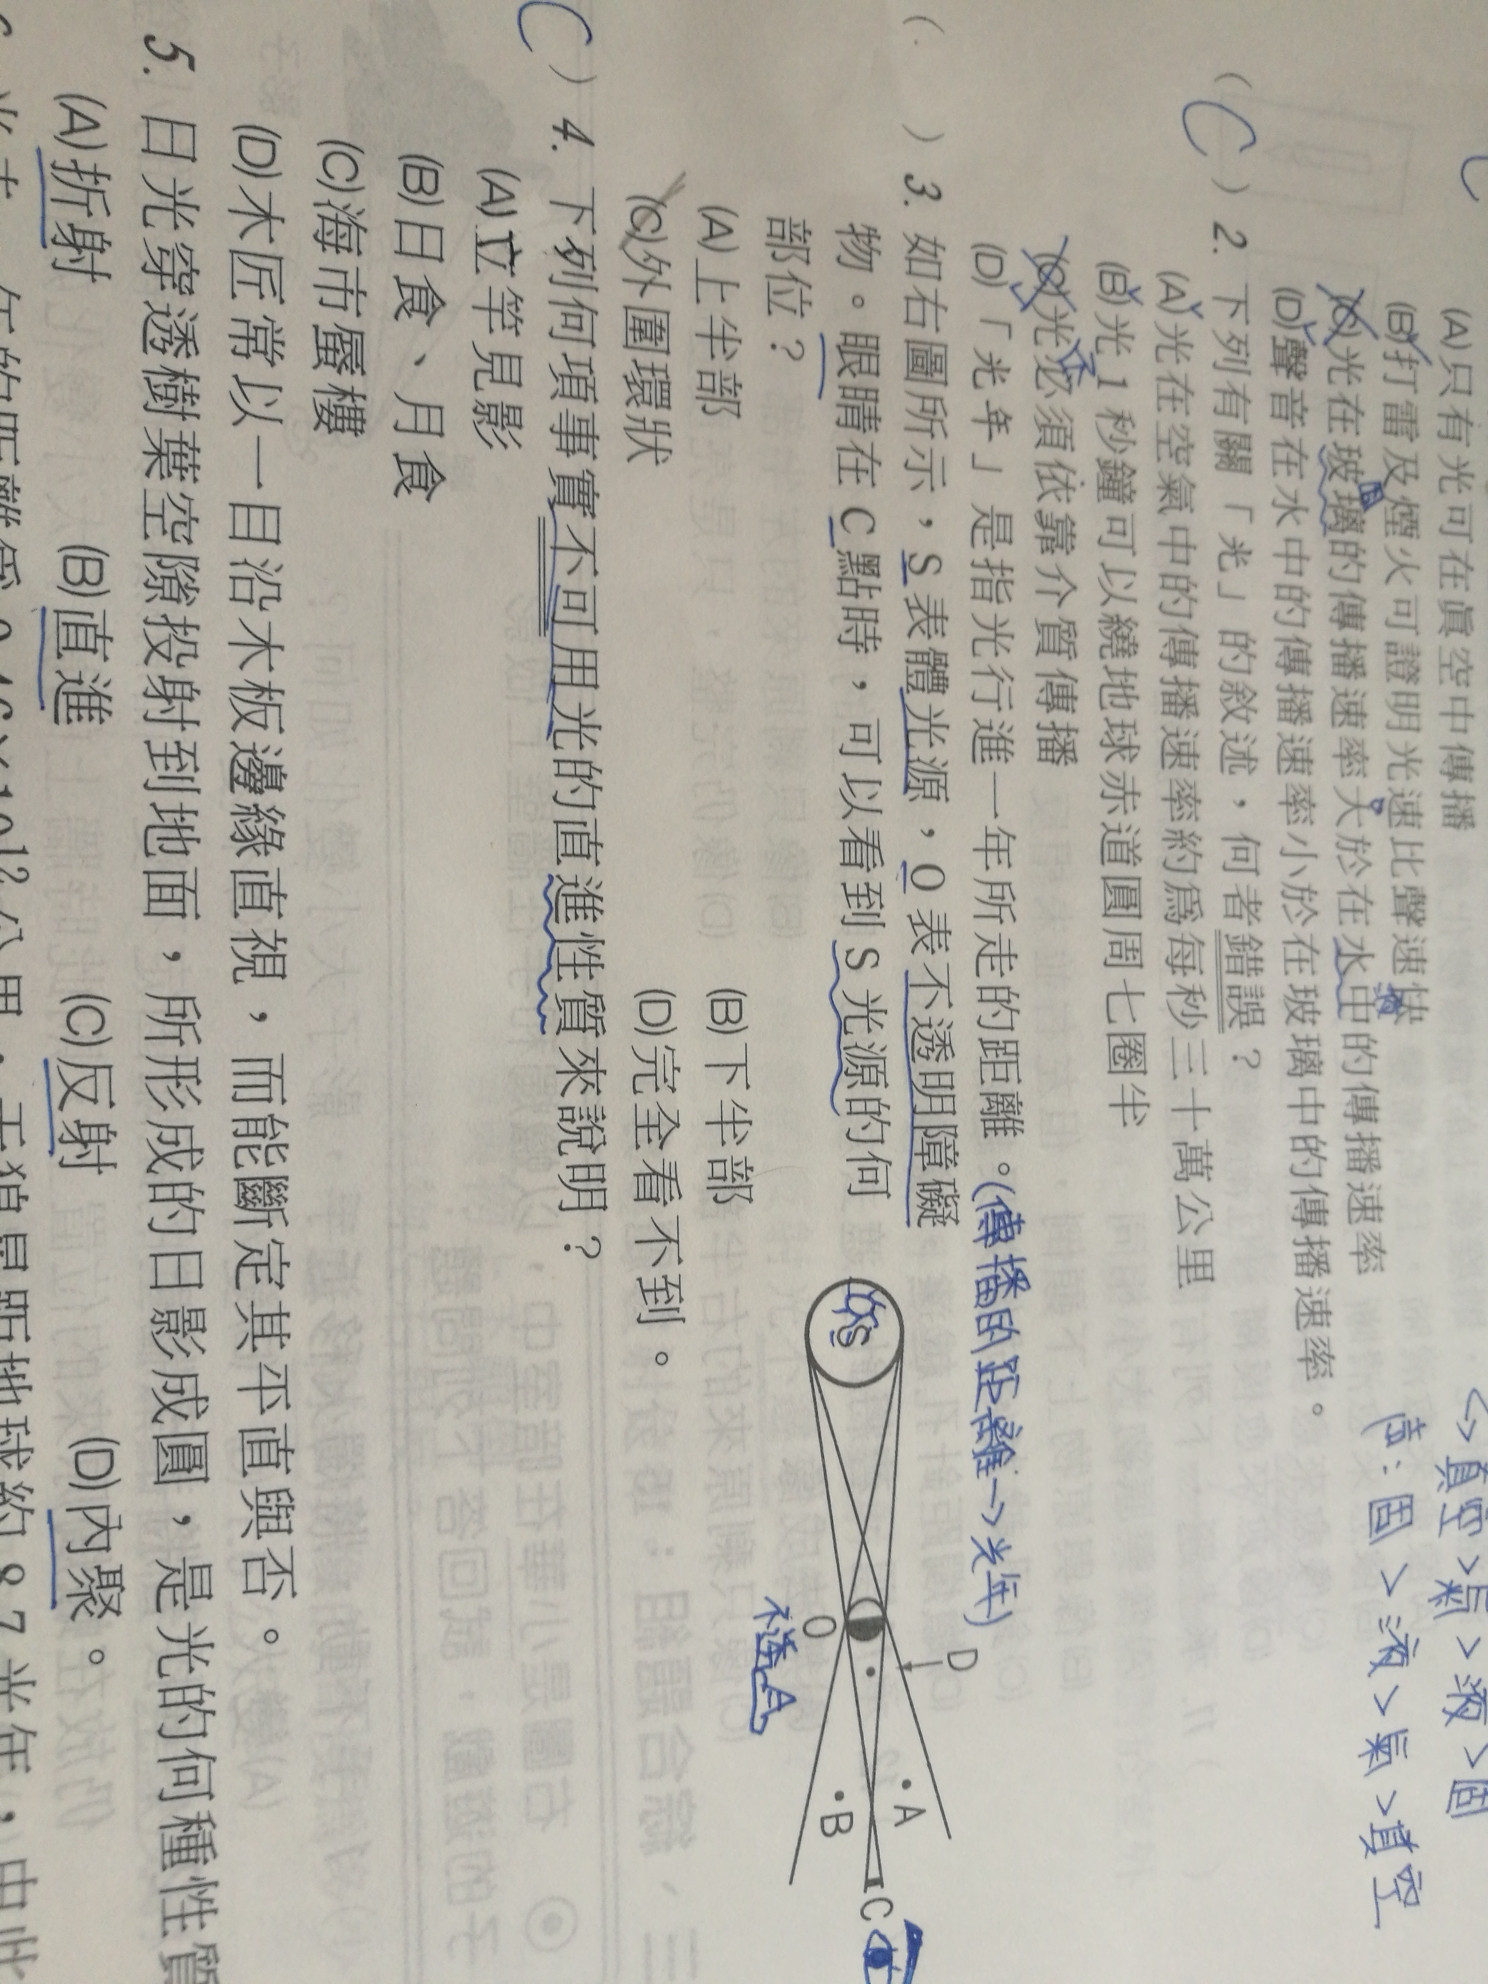 (A)只有光可在真空中傳播
(B)打雷及煙火可證明光速比聲速快
(C)光在玻璃的傳播速率大於在水中的傳播速率
(D)聲音在水中的傳播速率小於在玻璃中的傳播速率。
→真空>氣>液>固
声:固>液>氣>真空
(C)2.下列有關「光」的敘述，何者錯誤？
(A)光在空氣中的傳播速率約為每秒三十萬公里
(B)光1秒鐘可以繞地球赤道圓周七圈半
(C)光必須依靠介質傳播
不
(D)「光年」是指光行進一年所走的距離。(傳播的距離→光年)
( )3.如右圖所示，S表體光源，O表不透明障礙
物。眼睛在C點時，可以看到S光源的何
部位？
(A)上半部 (B)下半部
(C)外圍環狀 (D)完全看不到。
S
O
D
A
B
C
不透
(C)4.下列何項事實不可用光的直進性質來說明？
(A)立竿見影
(B)日食、月食
(C)海市蜃樓
(D)木匠常以一目沿木板邊緣直視，而能斷定其平直與否。
5.日光穿透樹葉空隙投射到地面，所形成的日影成圓，是光的何種性質
(A)折射 (B)直進 (C)反射 (D)內聚。